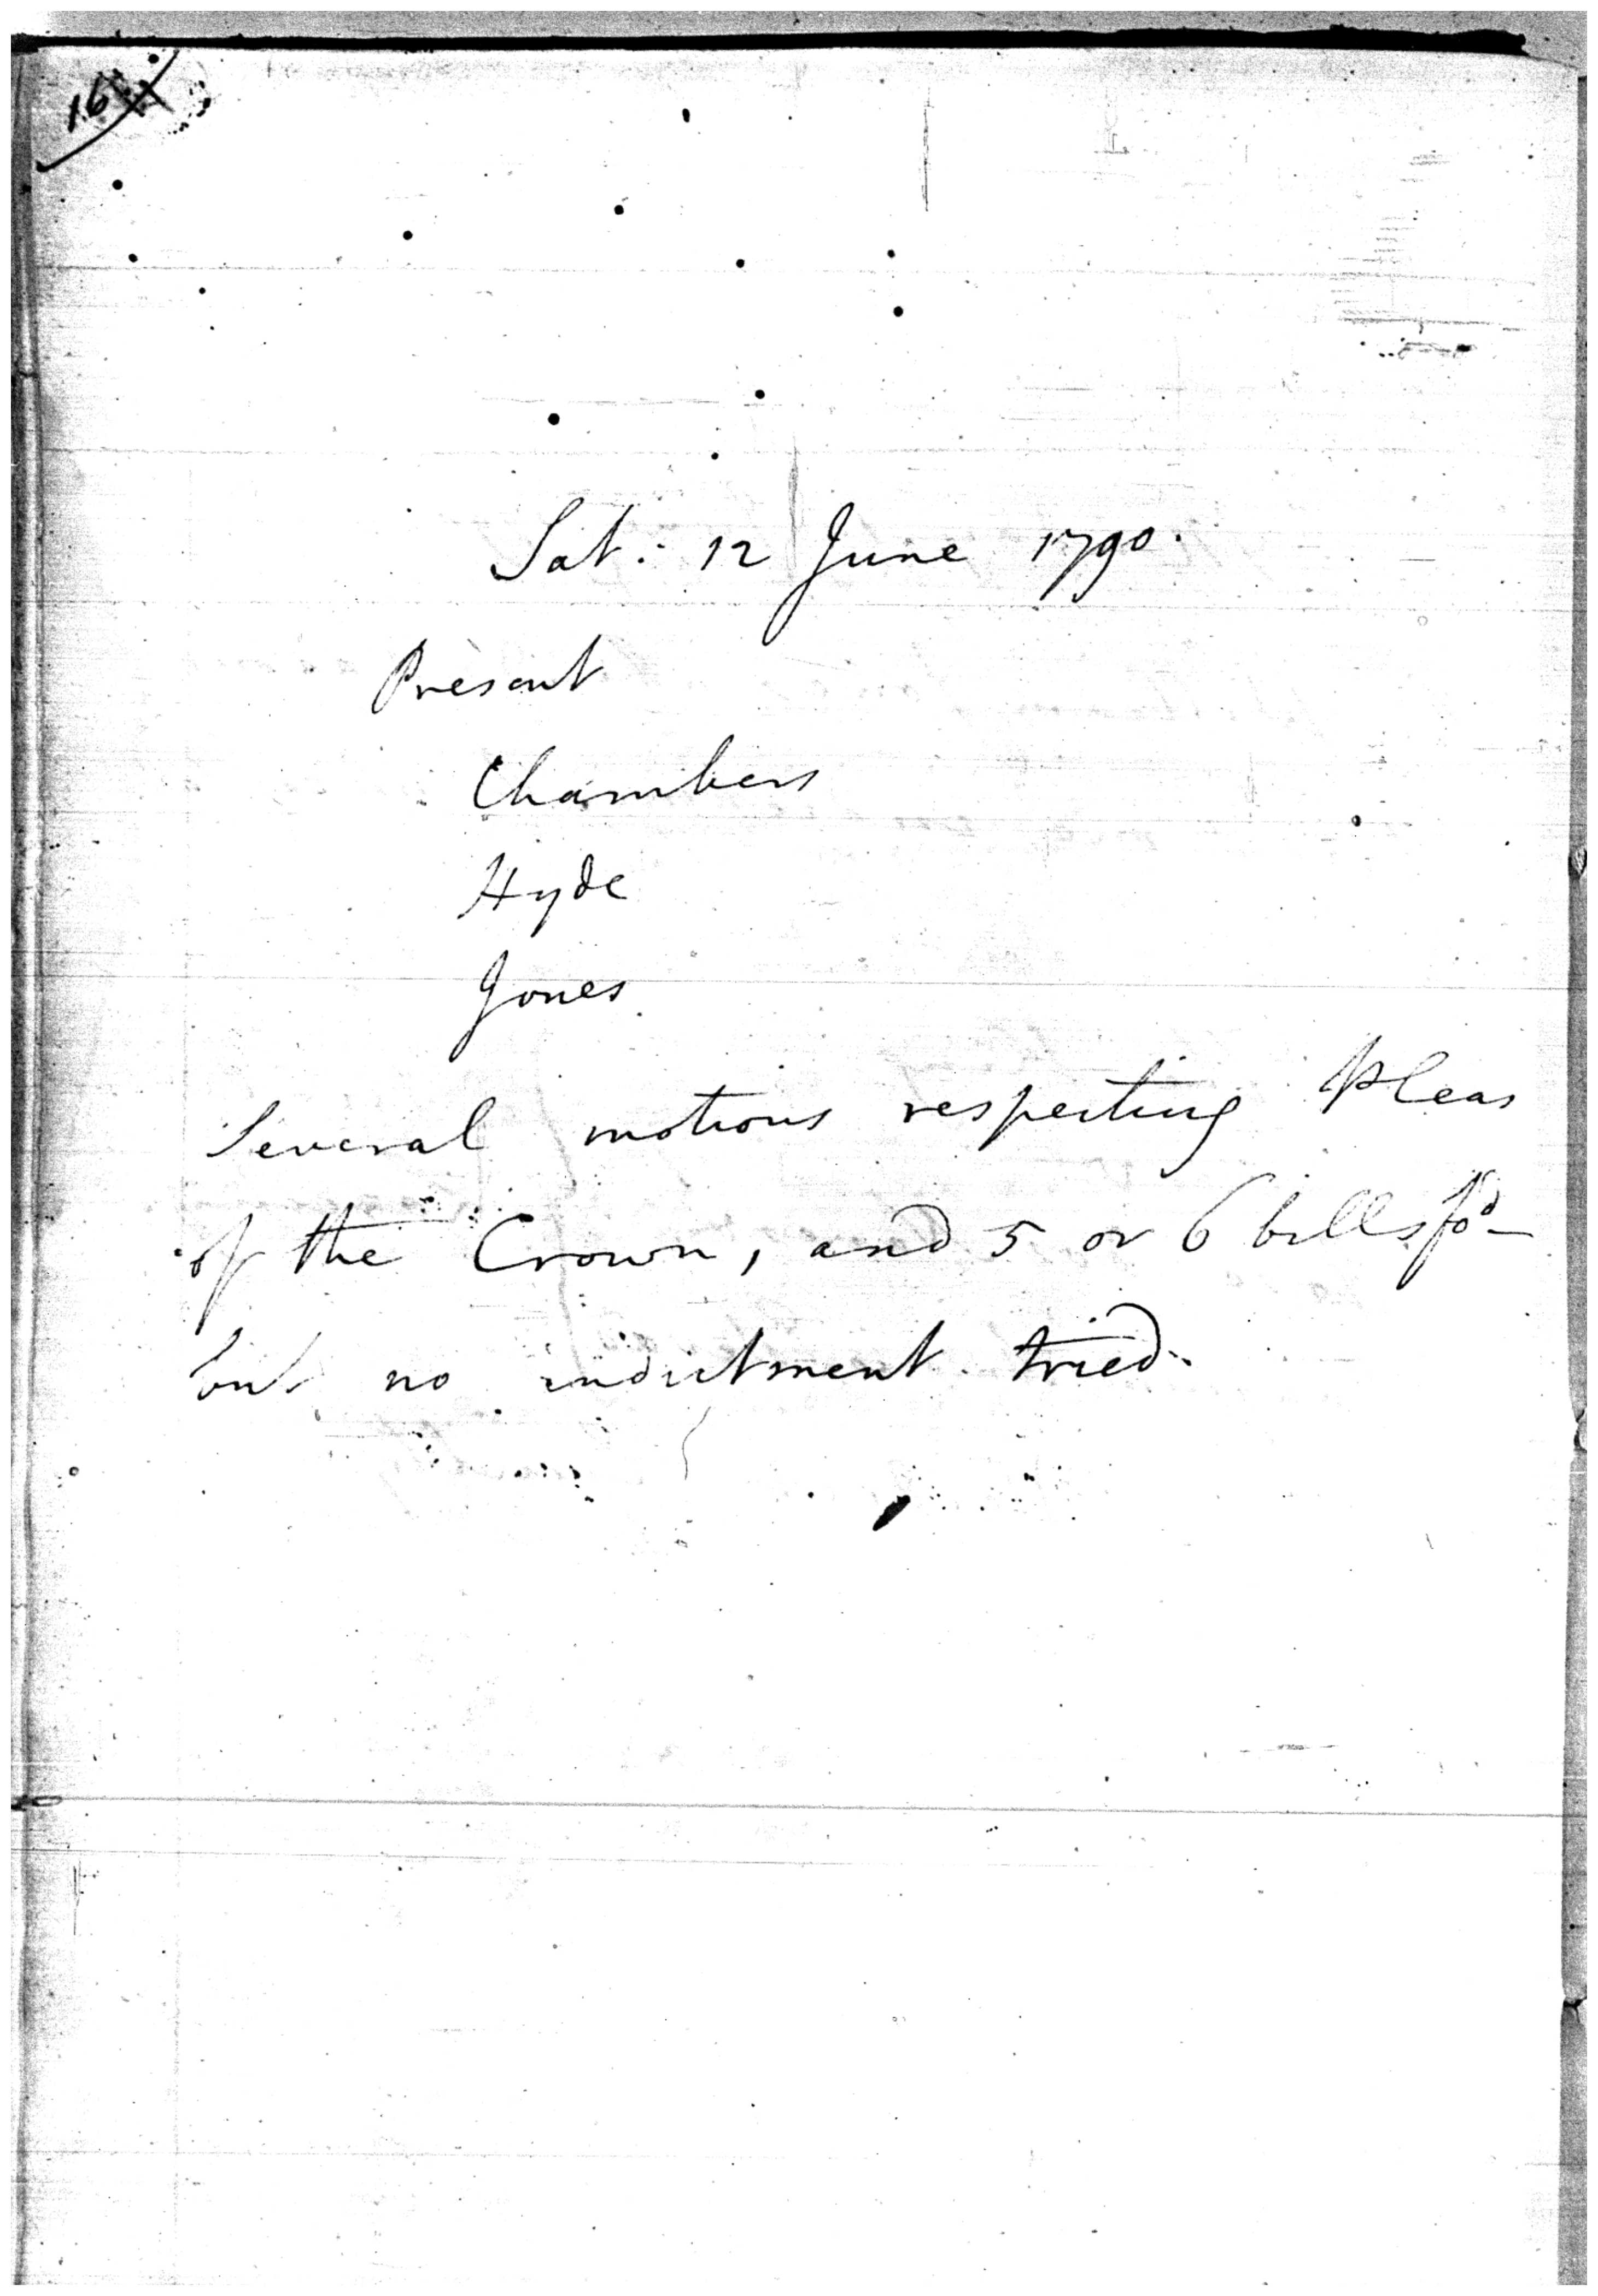 16
Sat. 12 June 1790.
Present
Chambers
Hyde
Jones
Several motions respecting Pleas
of the Crown, and 5 or 6 bills fd
but no indictment tried.